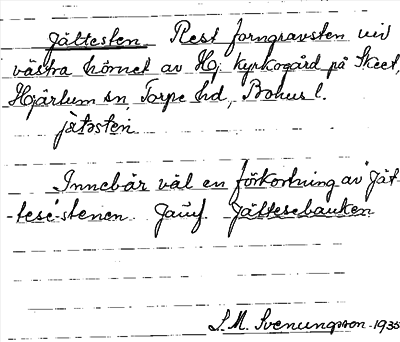 Jättesten Rest forngravsten vid
västra hörnet av Hj. kyrkogård på Skeet,
Hjärtum sn, Torpe hd, Bohus l.
jätəsten
Innebär väl en förkortning av "Jät-
-tese"-stenen. Jämf. Jättesebacken
S. M. Svenungsson - 1935